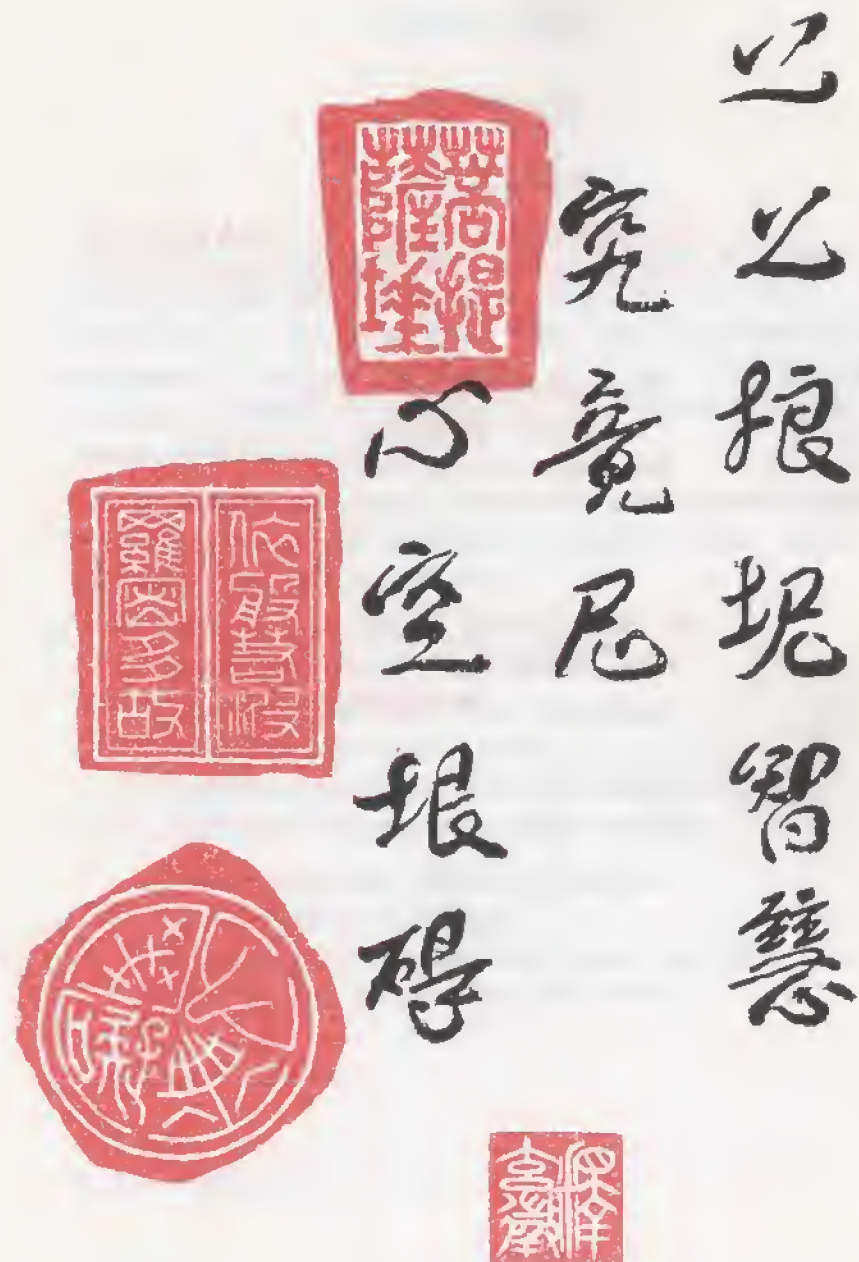 以以埌坭智慧
究竟尼
心空垠碍
菩提
薩埵
依般若波
羅蜜多故